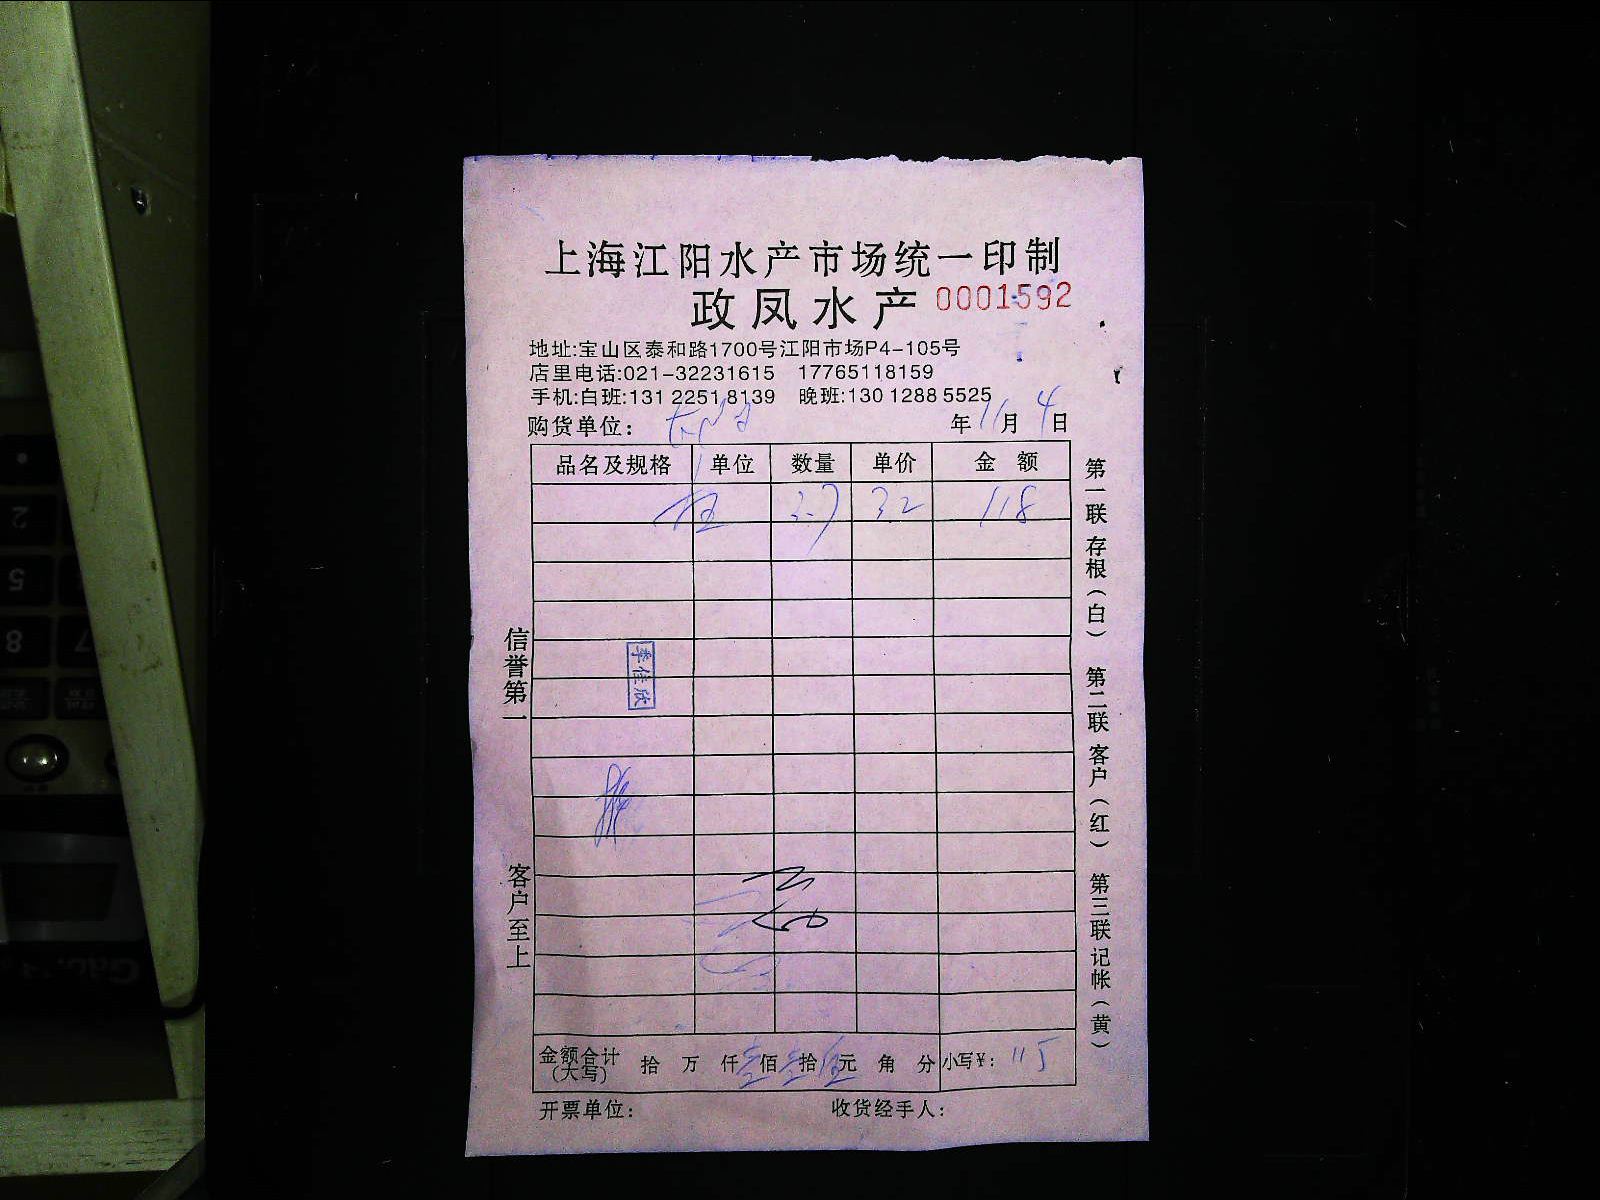 上海江阳水产市场统一印制
政凤水产 0001592
地址:宝山区泰和路1700号江阳市场P4-105号
店里电话:021-32231615 17765118159
手机:白班:131 2251 8139 晚班:130 1288 5525
购货单位: 年 11 月 4 日
品名及规格 单位 数量 单价 金额
3.7 32 118
信誉第一
客户至上
李佳欣
第一联存根(白) 第二联客户(红) 第三联记帐(黄)
金额合计(大写) 拾 万 仟 壹 佰 壹 拾 伍 元 角 分 小写¥: 115
开票单位: 收货经手人:
2
5
8
7